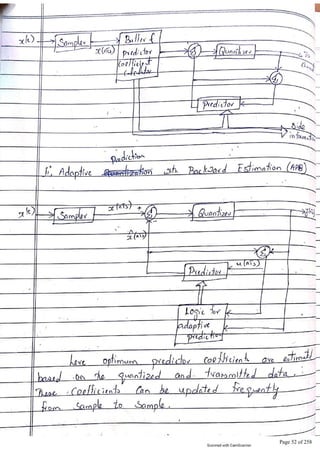 x(t)
Sampler
x(nTs)
Buffer &
predictor
coefficient
calculator
Quantizer
Predictor
Side
information
prediction
Adaptive Quantization with Backward Estimation (APB)
x(t)
Sampler
x(nTs)
Quantizer
x̂(nTs)
Predictor
u(nTs)
Logic for
adaptive
prediction
here optimum predictor coefficient are estimated
based on the quantized and transmitted data.
These coefficients can be updated frequently
from sample to sample.
Scanned with CamScanner
Page 52 of 258